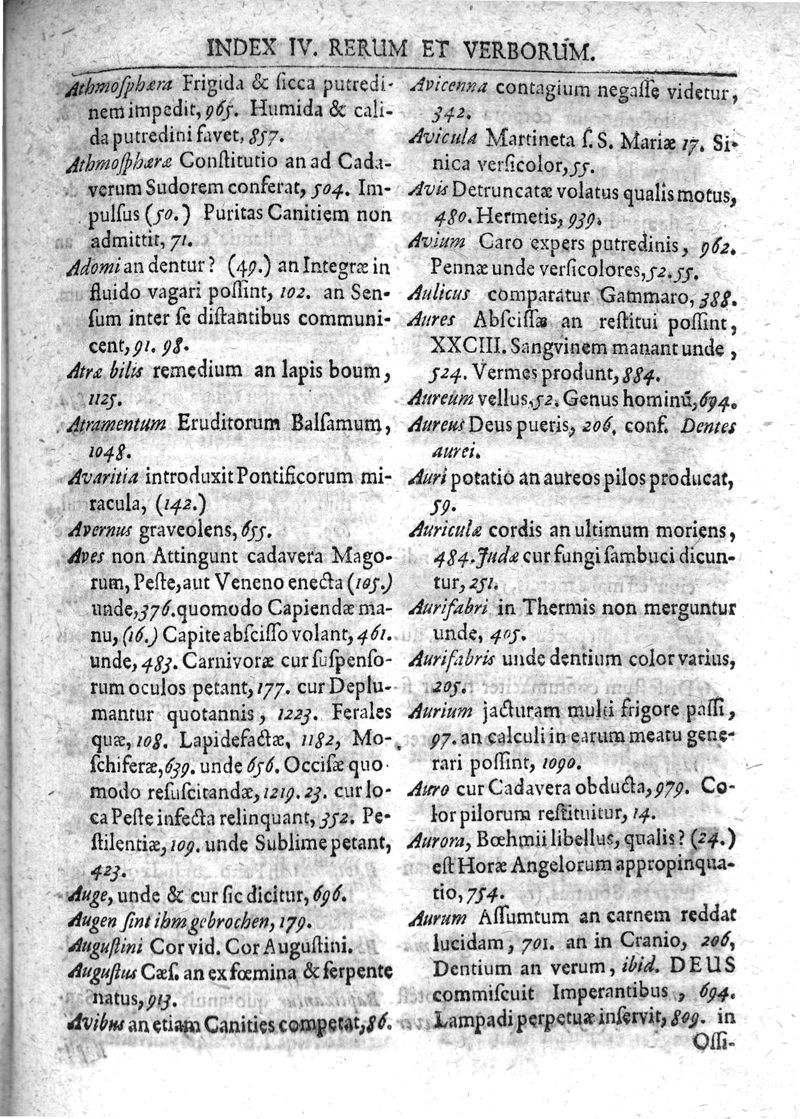 INDEX IV. RERUM ET VERBORUM.
Athmoſphæra Frigida & ſicca putredi-
nem impedit, 965. Humida & cali-
da putredini favet, 857.
Athmoſphæræ Conſtitutio an ad Cada-
verum Sudorem conferat, 504. Im-
pulſus (50.) Puritas Canitiem non
admittit, 71.
Adomi an dentur? (49.) an Integræ in
fluido vagari poſſint, 102. an Sen-
ſum inter ſe diſtantibus communi-
cent, 91. 98.
Atræ bilis remedium an lapis boum,
1125.
Atramentum Eruditorum Balſamum,
1048.
Avaritia introduxit Pontificorum mi-
racula, (142.)
Avernus graveolens, 655.
Aves non Attingunt cadavera Mago-
rum, Peſte, aut Veneno enecta (105.)
unde, 376. quomodo Capiendæ ma-
nu, (16.) Capite abſciſſo volant, 461.
unde, 483. Carnivoræ cur ſuſpenſo-
rum oculos petant, 177. cur Deplu-
mantur quotannis, 1223. Ferales
quæ, 108. Lapidefactæ, 1182, Mo-
ſchiferæ, 639. unde 656. Occiſæ quo-
modo reſuſcitandæ, 1219. 23. cur lo-
ca Peſte infecta relinquant, 352. Pe-
ſtilentiæ, 109. unde Sublime petant,
423.
Auge, unde & cur ſic dicitur, 696.
Augen ſint ihm gebrochen, 179.
Auguſtini Cor vid. Cor Auguſtini.
Auguſtus Cæſ. an ex fœmina & ſerpente
natus, 913.
Avibus an etiam Canities competat, 86.
Avicenna contagium negaſſe videtur,
342.
Avicula Martineta ſ. S. Mariæ 17. Si-
nica verſicolor, 55.
Avis Detruncatæ volatus qualis motus,
480. Hermetis, 939.
Avium Caro expers putredinis, 962.
Pennæ unde verſicolores, 52. 55.
Aulicus comparatur Gammaro, 388.
Aures Abſciſſæ an reſtitui poſſint,
XXCIII. Sangvinem manant unde,
524. Vermes produnt, 884.
Aureum vellus, 52. Genus hominũ, 694.
Aureus Deus pueris, 206. conf. Dentes
aurei.
Auri potatio an aureos pilos producat,
59.
Auriculæ cordis an ultimum moriens,
484. Judæ cur fungi ſambuci dicun-
tur, 251.
Aurifabri in Thermis non merguntur
unde, 405.
Aurifabris unde dentium color varius,
205.
Aurium jacturam multi frigore paſſi,
97. an calculi in earum meatu gene-
rari poſſint, 1090.
Auro cur Cadavera obducta, 979. Co-
lor pilorum reſtituitur, 14.
Aurora, Bœhmii libellus, qualis? (24.)
eſt Horæ Angelorum appropinqua-
tio, 754.
Aurum Aſſumtum an carnem reddat
lucidam, 701. an in Cranio, 206,
Dentium an verum, ibid. DEUS
commiſcuit Imperantibus, 694.
Lampadi perpetuæ inſervit, 809. in
Oſſi-